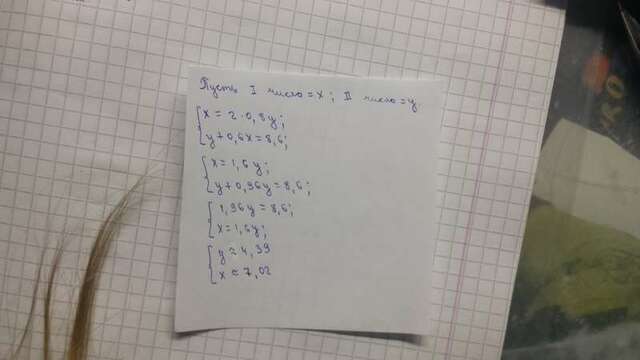 Пусть I число = x; II число = y
x = 2·0,8y;
y+0,6x=8,6;
x=1,6y;
y+0,96y=8,6;
1,96y=8,6;
x=1,6y;
y≈4,39
x≈7,02